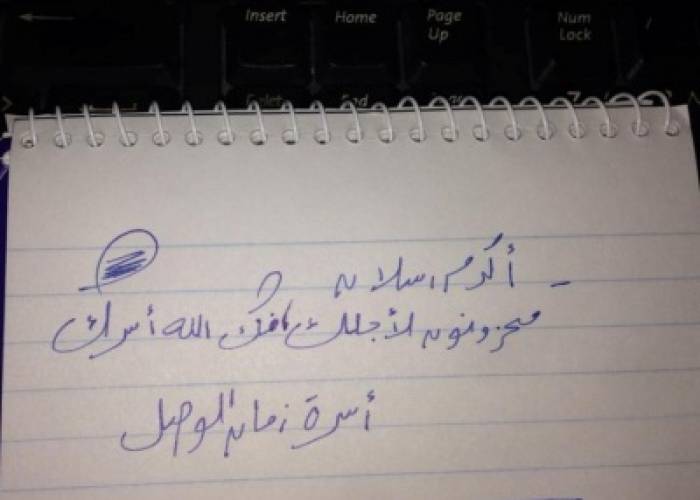 Insert Home Page Up Num Lock
- أكرم رسلان
محزونون لأجلك فك الله أسرك
أسرة زمان الوصل